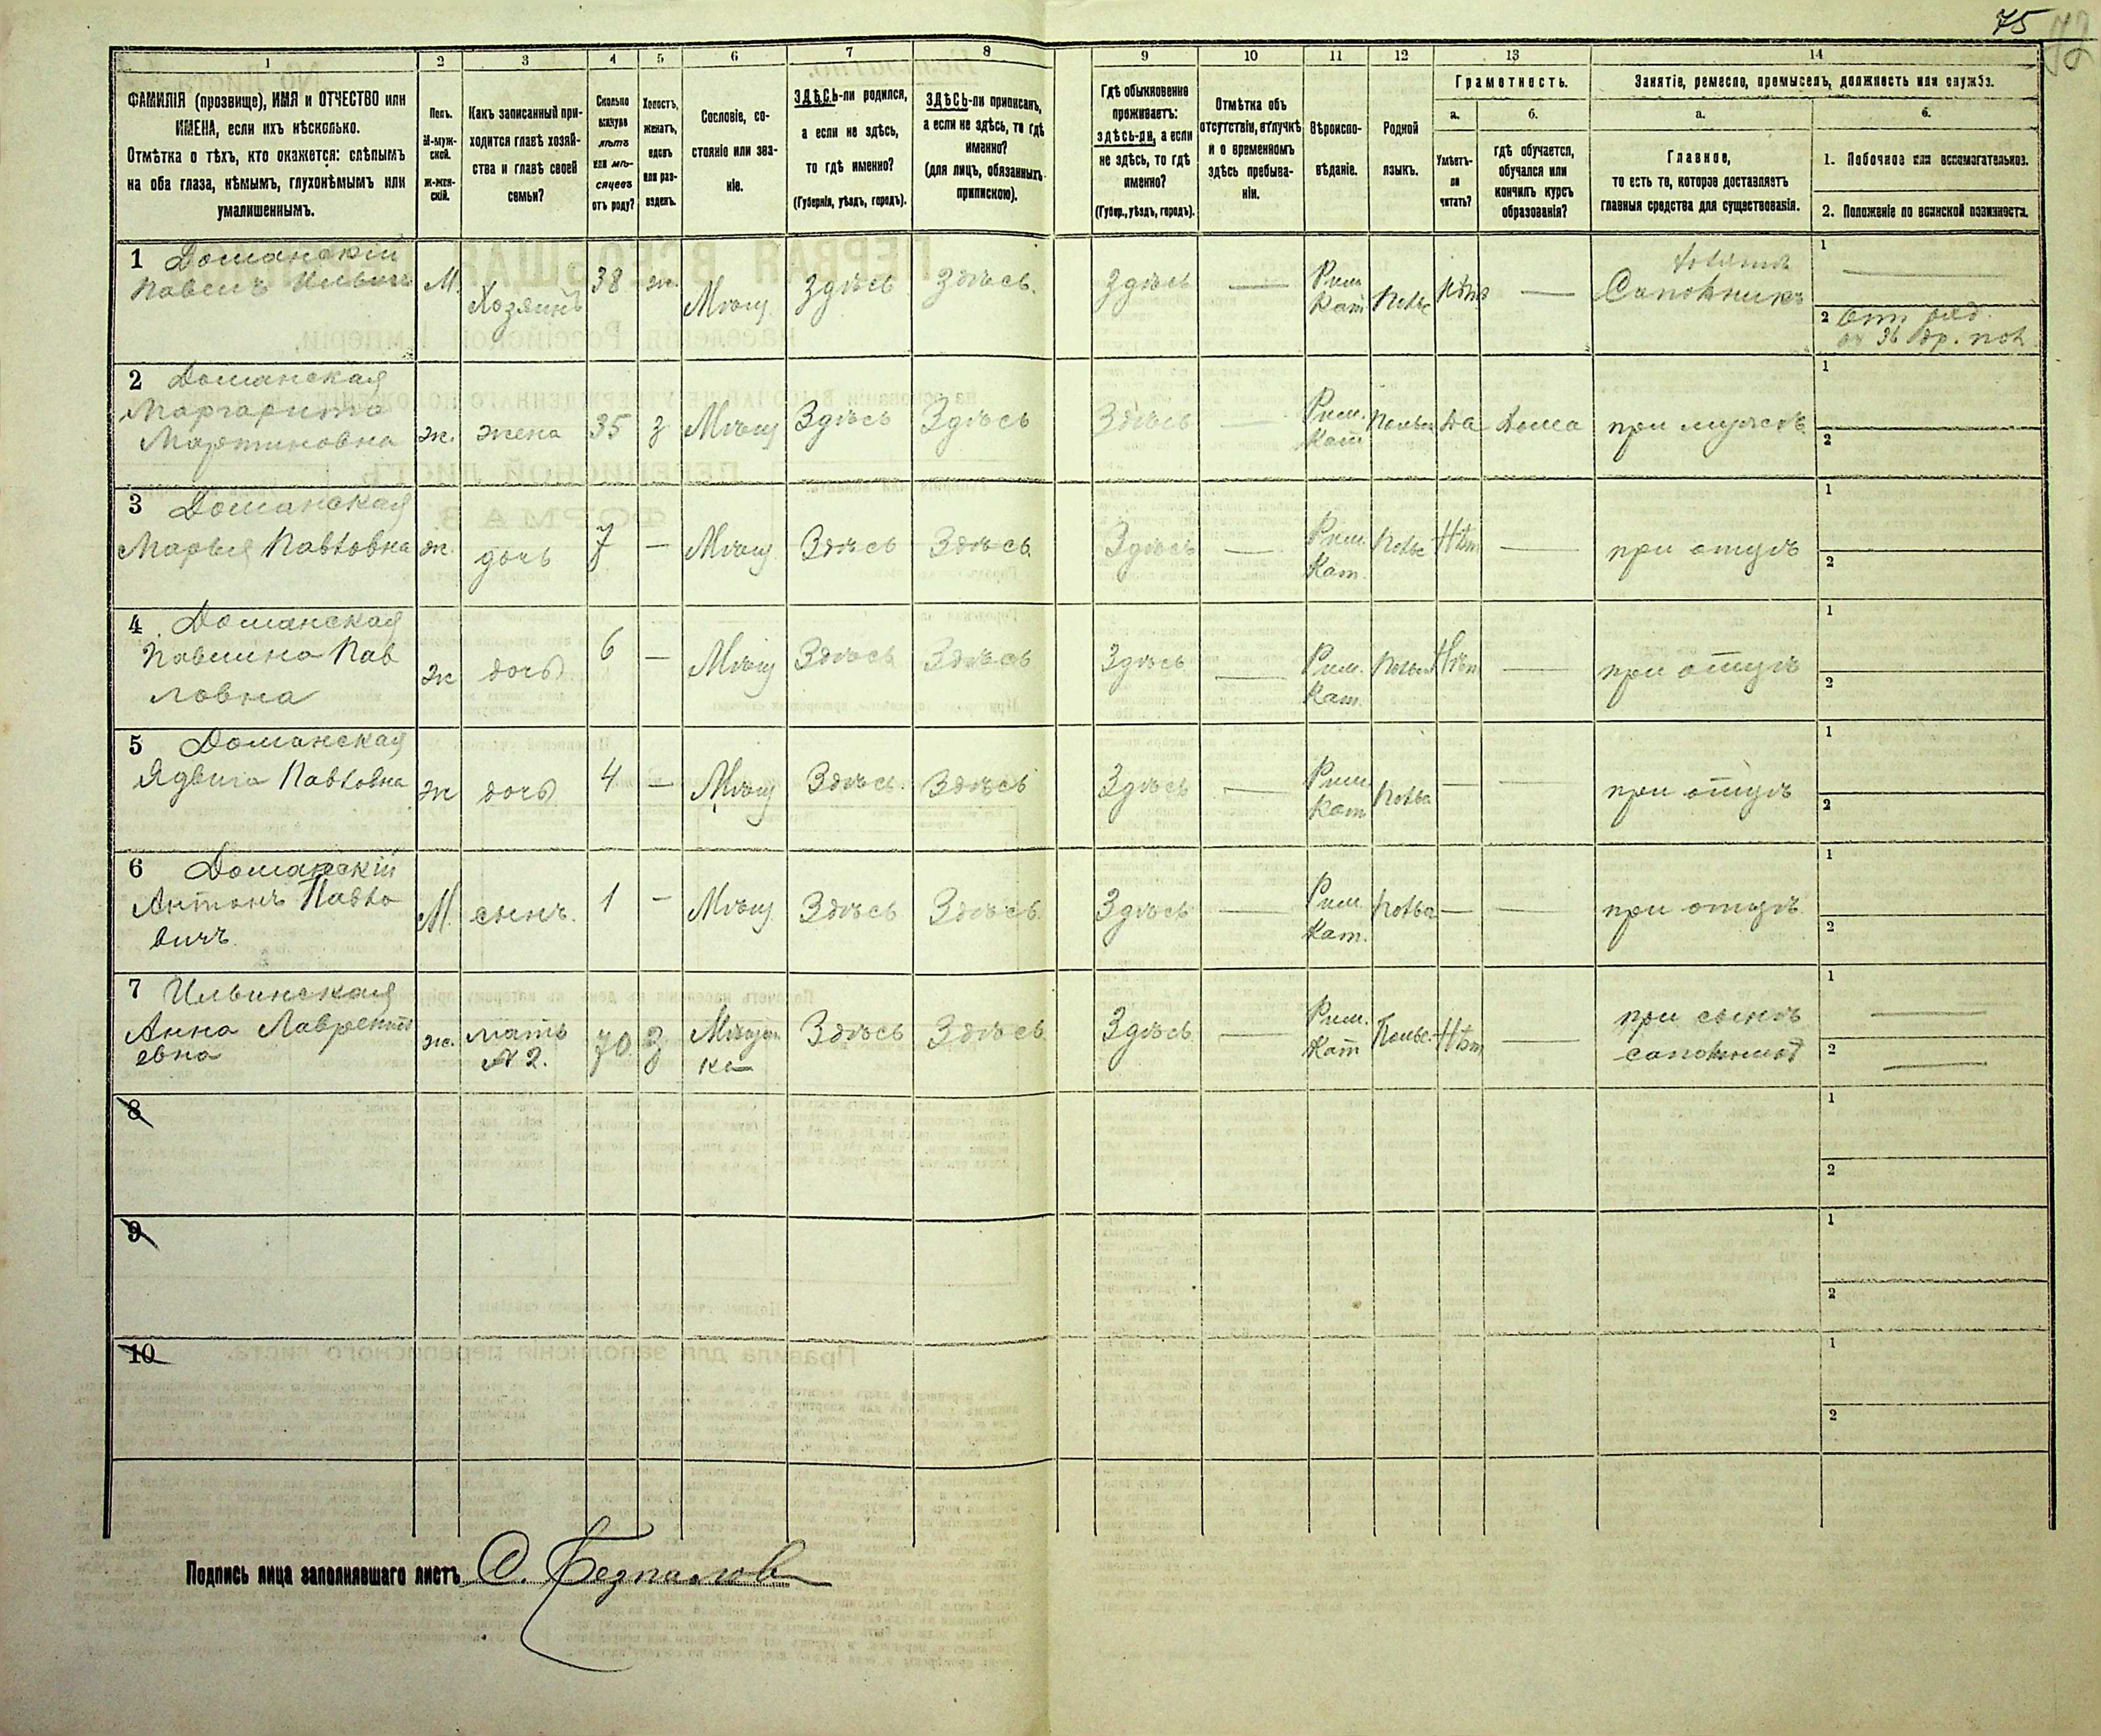 75
72
1 2 3 4 5 6 7 8 9 10 11 12 13 14
ФАМИЛІЯ (прозвище), ИМЯ и ОТЧЕСТВО или
ИМЕНА, если ихъ нѣсколько.
Отмѣтка о тѣхъ, кто окажется: слѣпымъ
на оба глаза, нѣмымъ, глухонѣмымъ или
умалишеннымъ.
Полъ.
М-муж-
ской.
ж-жен-
скій.
Какъ записанный при-
ходится главѣ хозяй-
ства и главѣ своей
семьи?
Сколько
минуло
лѣтъ
или мѣ-
сяцевъ
отъ роду?
Холостъ,
женатъ,
вдовъ
или раз-
веденъ.
Сословіе, со-
стояніе или зва-
ніе.
ЗДѢСЬ-ли родился,
а если не здѣсь,
то гдѣ именно?
(Губернія, уѣздъ, городъ).
ЗДѢСЬ-ли приписанъ,
а если не здѣсь, то гдѣ
именно?
(для лицъ, обязанныхъ
припискою).
Гдѣ обыкновенно
проживаетъ:
здѣсь-ли, а если
не здѣсь, то гдѣ
именно?
(Губер., уѣздъ, городъ).
Отмѣтка объ
отсутствіи, отлучкѣ
и о временномъ
здѣсь пребыва-
ніи.
Вѣроиспо-
вѣданіе.
Родной
языкъ.
Грамотность.
а.
Умѣетъ-
ли
читать?
б.
гдѣ обучается,
обучался или
кончилъ курсъ
образованія?
Занятіе, ремесло, промыселъ, должность или служба.
а.
Главное,
то есть то, которое доставляетъ
главныя средства для существованія.
б.
1. Побочное или вспомогательное.
2. Положеніе по воинской повинности.
1 Доманскій
Павелъ Ильичъ
М.
Хозяинъ
38
ж.
Мѣщ.
Здѣсь
Здѣсь.
Здѣсь
—
Рим.
Кат
Польс
Нѣтъ
—
Сапожникъ
1
2
2 Доманская
Маргарита
Мартиновна
ж.
жена
35
з
Мѣщ
Здѣсь
Здѣсь
Здѣсь
—
Рим.
Кат
Польск
Да
дома
при мужѣ
1
2
3 Доманская
Марья Павловна
ж.
дочь
7
—
Мѣщ
Здѣсь
Здѣсь
Здѣсь
—
Рим.
Кат.
Польс
Нѣт
—
при отцѣ
1
2
4 Доманская
Павлина Пав
ловна
ж
дочь
6
—
Мѣщ
Здѣсь
Здѣсь
Здѣсь
—
Рим.
Кат.
Польск
Нѣт
—
при отцѣ
1
2
5 Доманская
Ядвига Павловна
ж
дочь
4
—
Мѣщ
Здѣсь
Здѣсь
Здѣсь
—
Рим.
Кат
Польс
—
—
при отцѣ
1
2
6 Доманскій
Антонъ Павло
вичъ
М.
сынъ.
1
—
Мѣщ
Здѣсь
Здѣсь
Здѣсь
—
Рим.
Кат.
Польс
—
—
при отцѣ
1
2
7 Ильинская
Анна Лаврентъ
евна
ж.
мать
№ 2.
70
З
Мѣщан
ка
Здѣсь
Здѣсь
Здѣсь
—
Рим.
Кат
Польс.
Нѣт
—
при сынѣ
1
2
8
1
2
9
1
2
10
1
2
Подпись лица заполнявшаго листъ